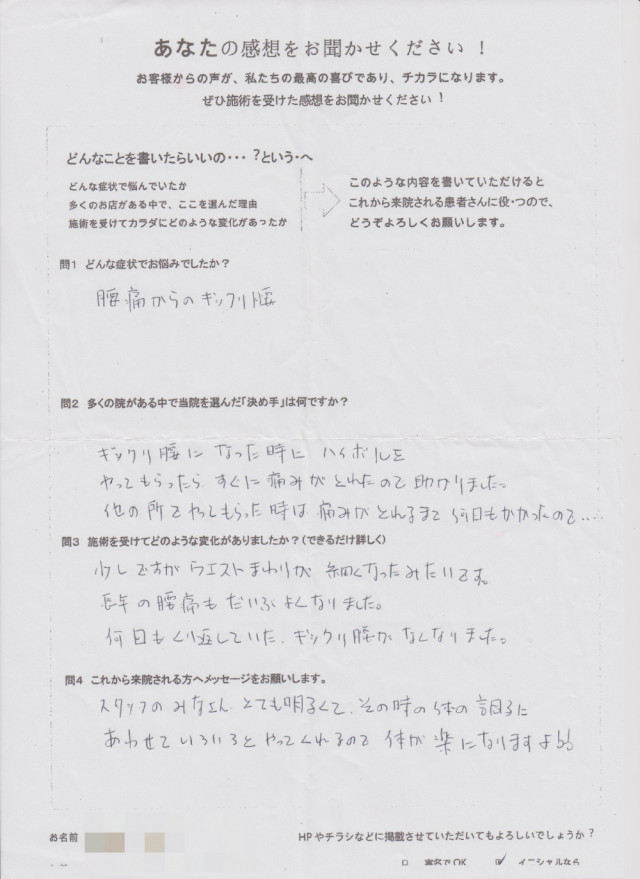 あなたの感想をお聞かせください！
お客様からの声が、私たちの最高の喜びであり、チカラになります。
ぜひ施術を受けた感想をお聞かせください！
どんなことを書いたらいいの・・・？という・へ
どんな症状で悩んでいたか
多くのお店がある中で、ここを選んだ理由
施術を受けてカラダにどのような変化があったか
このような内容を書いていただけると
これから来院される患者さんに役・つので、
どうぞよろしくお願いします。
問1 どんな症状でお悩みでしたか？
腰痛からのギックリ腰
問2 多くの院がある中で当院を選んだ「決め手」は何ですか？
ギックリ腰になった時にハイボルを
やってもらったらすぐに痛みがとれたので助かりました。
他の所でやってもらった時は痛みがとれるまで何日もかかったので・・・・
問3 施術を受けてどのような変化がありましたか？（できるだけ詳しく）
少しですがウエストまわりが細くなったみたいです。
長年の腰痛もだいぶよくなりました。
何日もくり返していた、ギックリ腰がなくなりました。
問4 これから来院される方へメッセージをお願いします。
スタッフのみなさん、とても明るくて、その時の体の調子に
あわせていろいろとやってくれるので体が楽になりますよ！！
お名前
HPやチラシなどに掲載させていただいてもよろしいでしょうか？
実名でOK イニシャルなら